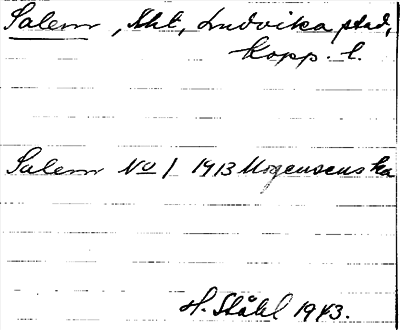 Salem, Äht, Ludvika stad,
Kopp. l.
Salem No 1 1913 Mogensens ka
H. Ståhl 1943.